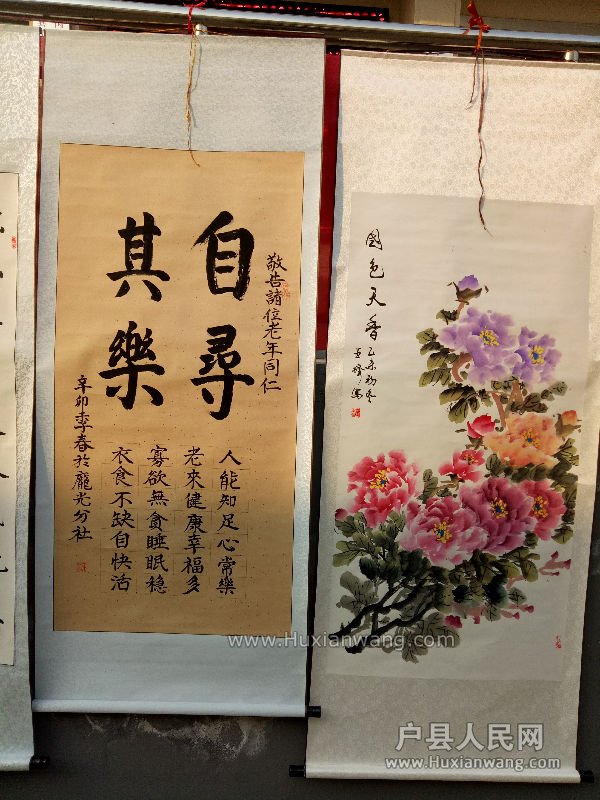 敬告諸位老年同仁
自尋
其樂
人能知足心常樂
老來健康幸福多
寡欲無貪睡眠穩
衣食不缺自快活
辛卯季春於龐光分社
國色天香
乙未初冬
www.Huxianwang.com
户县人民网
www.Huxianwang.com